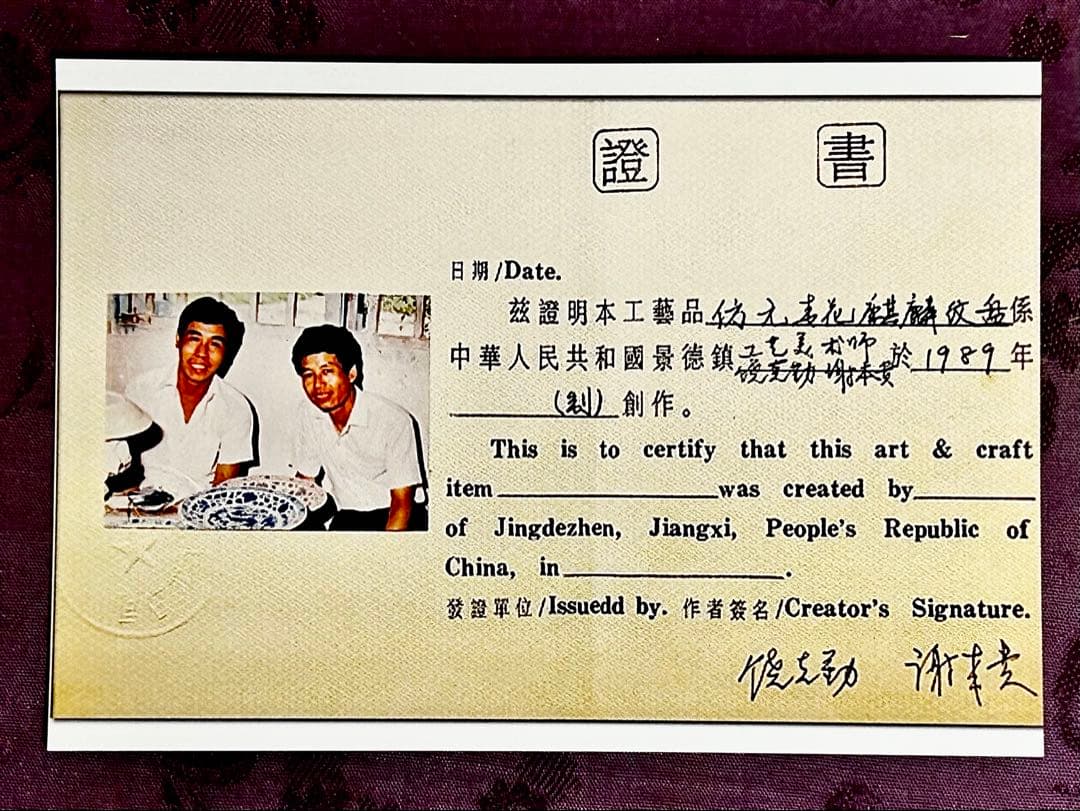 證 書
日期/Date.
兹證明本工藝品仿元青花麒麟纹盘係
中華人民共和國景德鎮工艺美术师
饶克勤 谢奉贵於1989年
(制)創作。
This is to certify that this art & craft
item was created by
of Jingdezhen, Jiangxi, People's Republic of
China, in .
發證單位/Issuedd by. 作者簽名/Creator's Signature.
饶克勤 谢奉贵